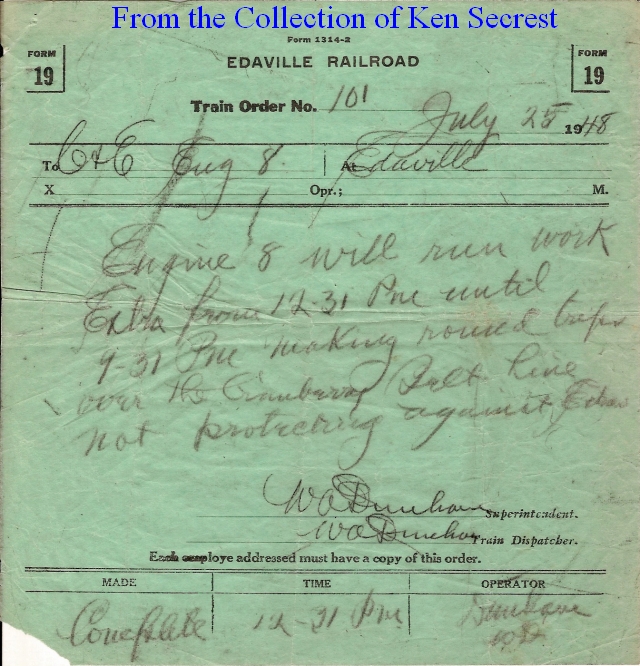 From the Collection of Ken Secrest
Form 1314-2
FORM 19
EDAVILLE RAILROAD
FORM 19
Train Order No. 101
July 25 1948
To C & E Eng 8 At Edaville
X Opr.; M.
Engine 8 will run work
Extra from 12-31 Pm until
9-31 Pm making round trips
over the Cranberry Belt Line
not protecting against Extras
W A Dunham Superintendent.
W A Dunham Train Dispatcher.
Each employe addressed must have a copy of this order.
MADE TIME OPERATOR
Complete 12-31 Pm Dunham